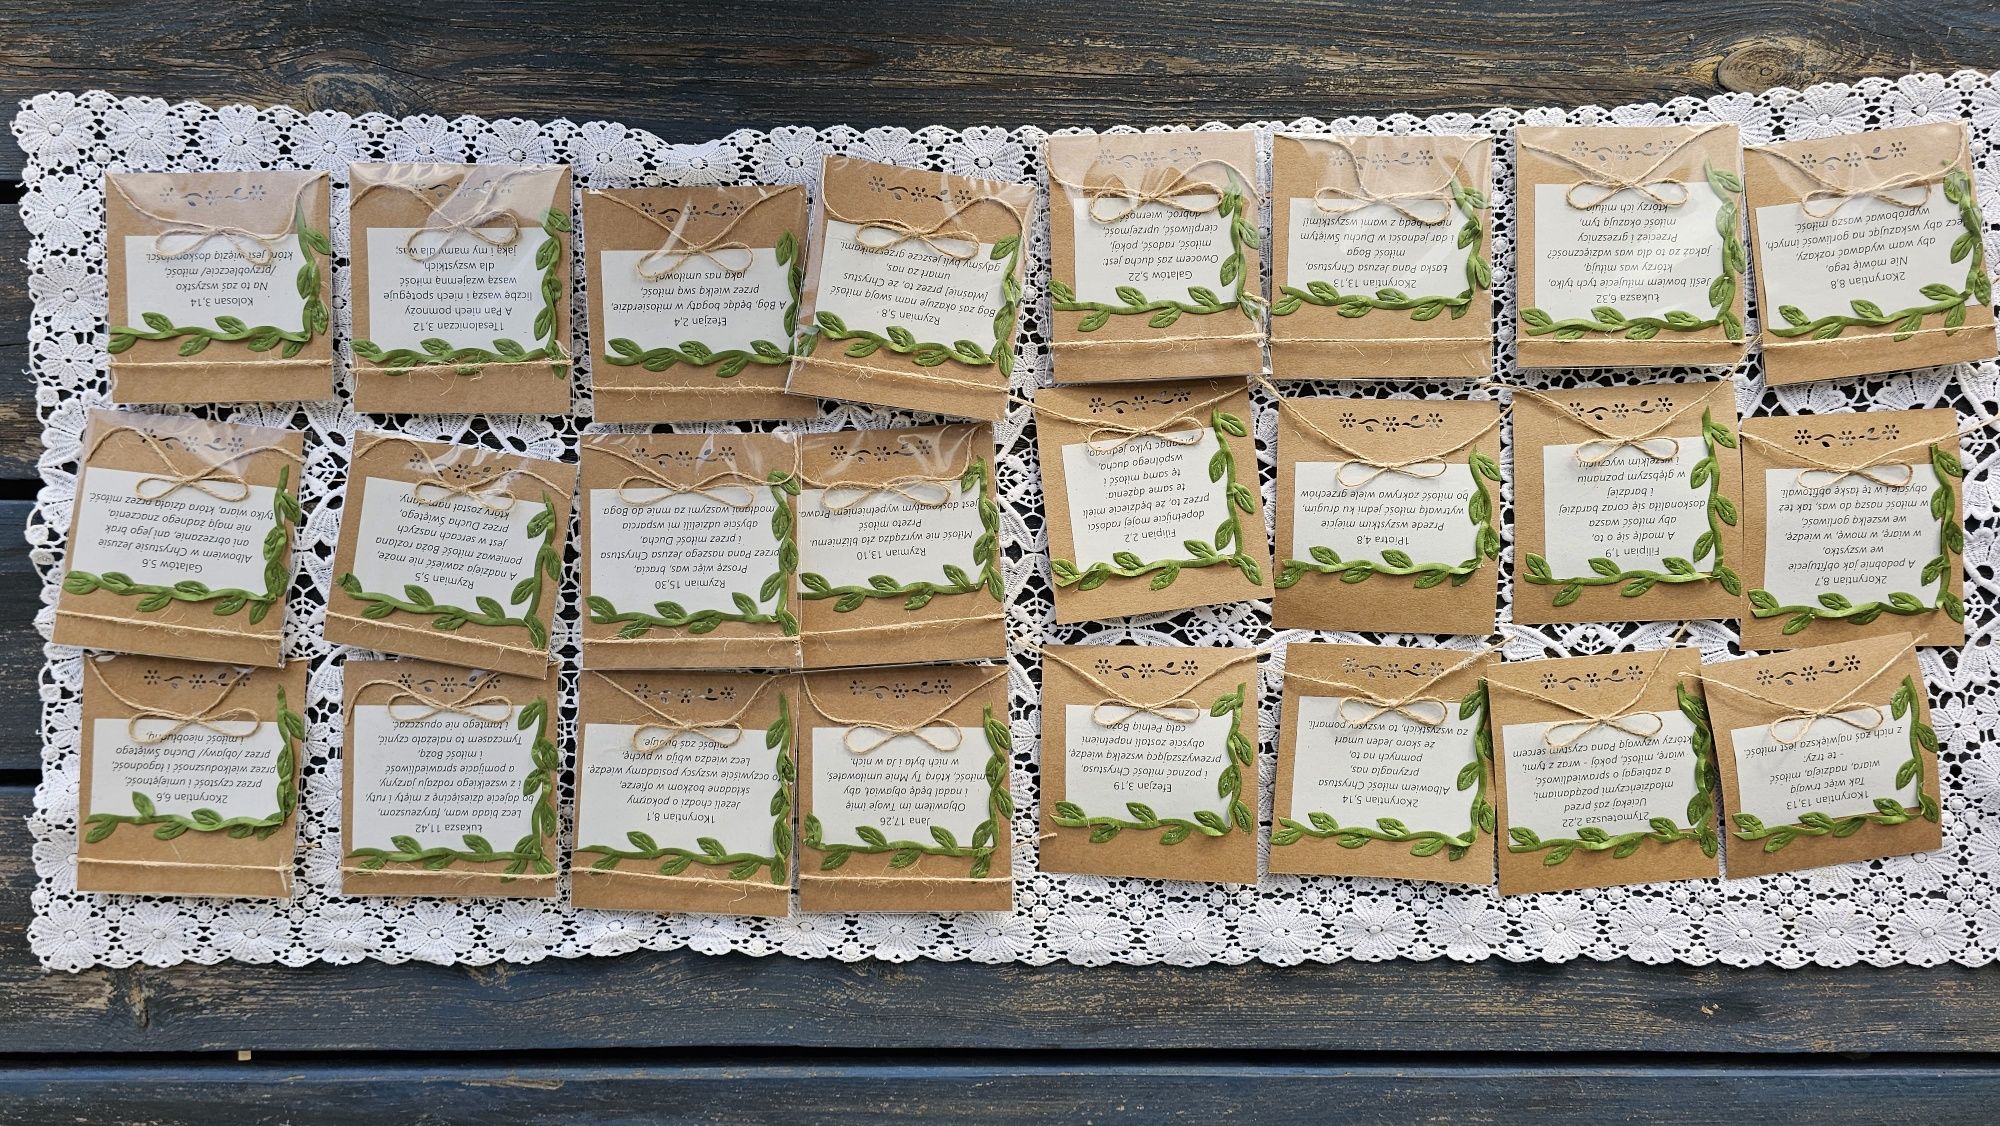 1Koryntian 13,13
Tak więc trwają
wiara, nadzieja, miłość
- te trzy:
z nich zaś największa jest miłość
2Tymoteusza 2,22
Uciekaj zaś przed
młodzieńczymi pożądaniami,
a zabiegaj o sprawiedliwość,
wiarę, miłość, pokój - wraz z tymi,
którzy wzywają Pana czystym sercem
2Koryntian 5,14
Albowiem miłość Chrystusa
przynagla nas,
pomnych na to,
że skoro Jeden umarł
za wszystkich, to wszyscy pomarli.
Efezjan 3,19
i poznać miłość Chrystusa,
przewyższającą wszelką wiedzę,
abyście zostali napełnieni
całą Pełnią Bożą
Jana 17,26
Objawiłem im Twoje imię
i nadal będę objawiał, aby
miłość, którą Ty Mnie umiłowałeś,
w nich była i Ja w nich.
1Koryntian 8,1
Jeżeli chodzi o pokarmy
składane bożkom w ofierze,
to oczywiście wszyscy posiadamy wiedzę.
Lecz wiedza wbija w pychę,
miłość zaś buduje.
Łukasza 11,42
Lecz biada wam, faryzeuszom,
bo dajecie dziesięcinę z mięty i ruty,
i z wszelkiego rodzaju jarzyny,
a pomijacie sprawiedliwość
i miłość Bożą.
Tymczasem to należało czynić,
i tamtego nie opuszczać.
2Koryntian 6,6
przez czystość i umiejętność,
przez wielkoduszność i łagodność,
przez /objawy/ Ducha Świętego
i miłość nieobłudną,
2Koryntian 8,7
A podobnie jak obfitujecie
we wszystko,
w wiarę, w mowę, w wiedzę,
we wszelką gorliwość,
w miłość naszą do was, tak też
obyście i w tę łaskę obfitowali.
Filipian 1,9
A modlę się o to,
aby miłość wasza
doskonaliła się coraz bardziej
i bardziej
w głębszym poznaniu
i wszelkim wyczuciu
1Piotra 4,8
Przede wszystkim miejcie
wytrwałą miłość jedni ku drugim,
bo miłość zakrywa wiele grzechów
Filipian 2,2
dopełnijcie mojej radości
przez to, że będziecie mieli
te same dążenia:
tę samą miłość i
wspólnego ducha,
pragnąc tylko jednego,
Rzymian 13,10
Miłość nie wyrządza zła bliźniemu.
Przeto miłość
jest doskonałym wypełnieniem Prawa.
Rzymian 15,30
Proszę więc was, bracia,
przez Pana naszego Jezusa Chrystusa
i przez miłość Ducha,
abyście udzielili mi wsparcia
modłami waszymi za mnie do Boga
Rzymian 5,5
A nadzieja zawieść nie może,
ponieważ miłość Boża rozlana
jest w sercach naszych
przez Ducha Świętego,
który został nam dany.
Galatów 5,6
Albowiem w Chrystusie Jezusie
ani obrzezanie, ani jego brak
nie mają żadnego znaczenia,
tylko wiara, która działa przez miłość
2Koryntian 8,8
Nie mówię tego,
aby wam wydawać rozkazy,
lecz aby wskazując na gorliwość innych,
wypróbować waszą miłość.
Łukasza 6,32
Jeśli bowiem miłujecie tych tylko,
którzy was miłują,
jakaż za to dla was wdzięczność?
Przecież i grzesznicy
miłość okazują tym,
którzy ich miłują.
2Koryntian 13,13
Łaska Pana Jezusa Chrystusa,
miłość Boga
i dar jedności w Duchu Świętym
niech będą z wami wszystkimi!
Galatów 5,22
Owocem zaś ducha jest:
miłość, radość, pokój,
cierpliwość, uprzejmość,
dobroć, wierność,
Rzymian 5,8
Bóg zaś okazuje nam swoją miłość
[właśnie] przez to, że Chrystus
umarł za nas,
gdyśmy jeszcze byli grzesznikami.
Efezjan 2,4
A Bóg, będąc bogaty w miłosierdzie,
przez wielką swą miłość,
jaką nas umiłował,
1Tesaloniczan 3,12
A Pan niech pomnoży
liczbę waszą i niech spotęguje
waszą wzajemną miłość
dla wszystkich
jaką i my mamy dla was;
Kolosan 3,14
Na to zaś wszystko
/przyobleczcie/ miłość,
która jest więzią doskonałości.